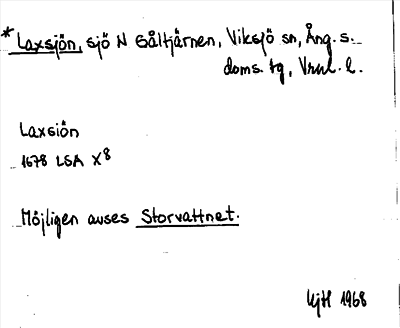 * Laxsjön, sjö N Gåltjärnen, Viksjö sn, Ång. s.
doms. tg, Vrml. l.
Laxsiön
1678 LSA X8
Möjligen avses Storvattnet.
1968